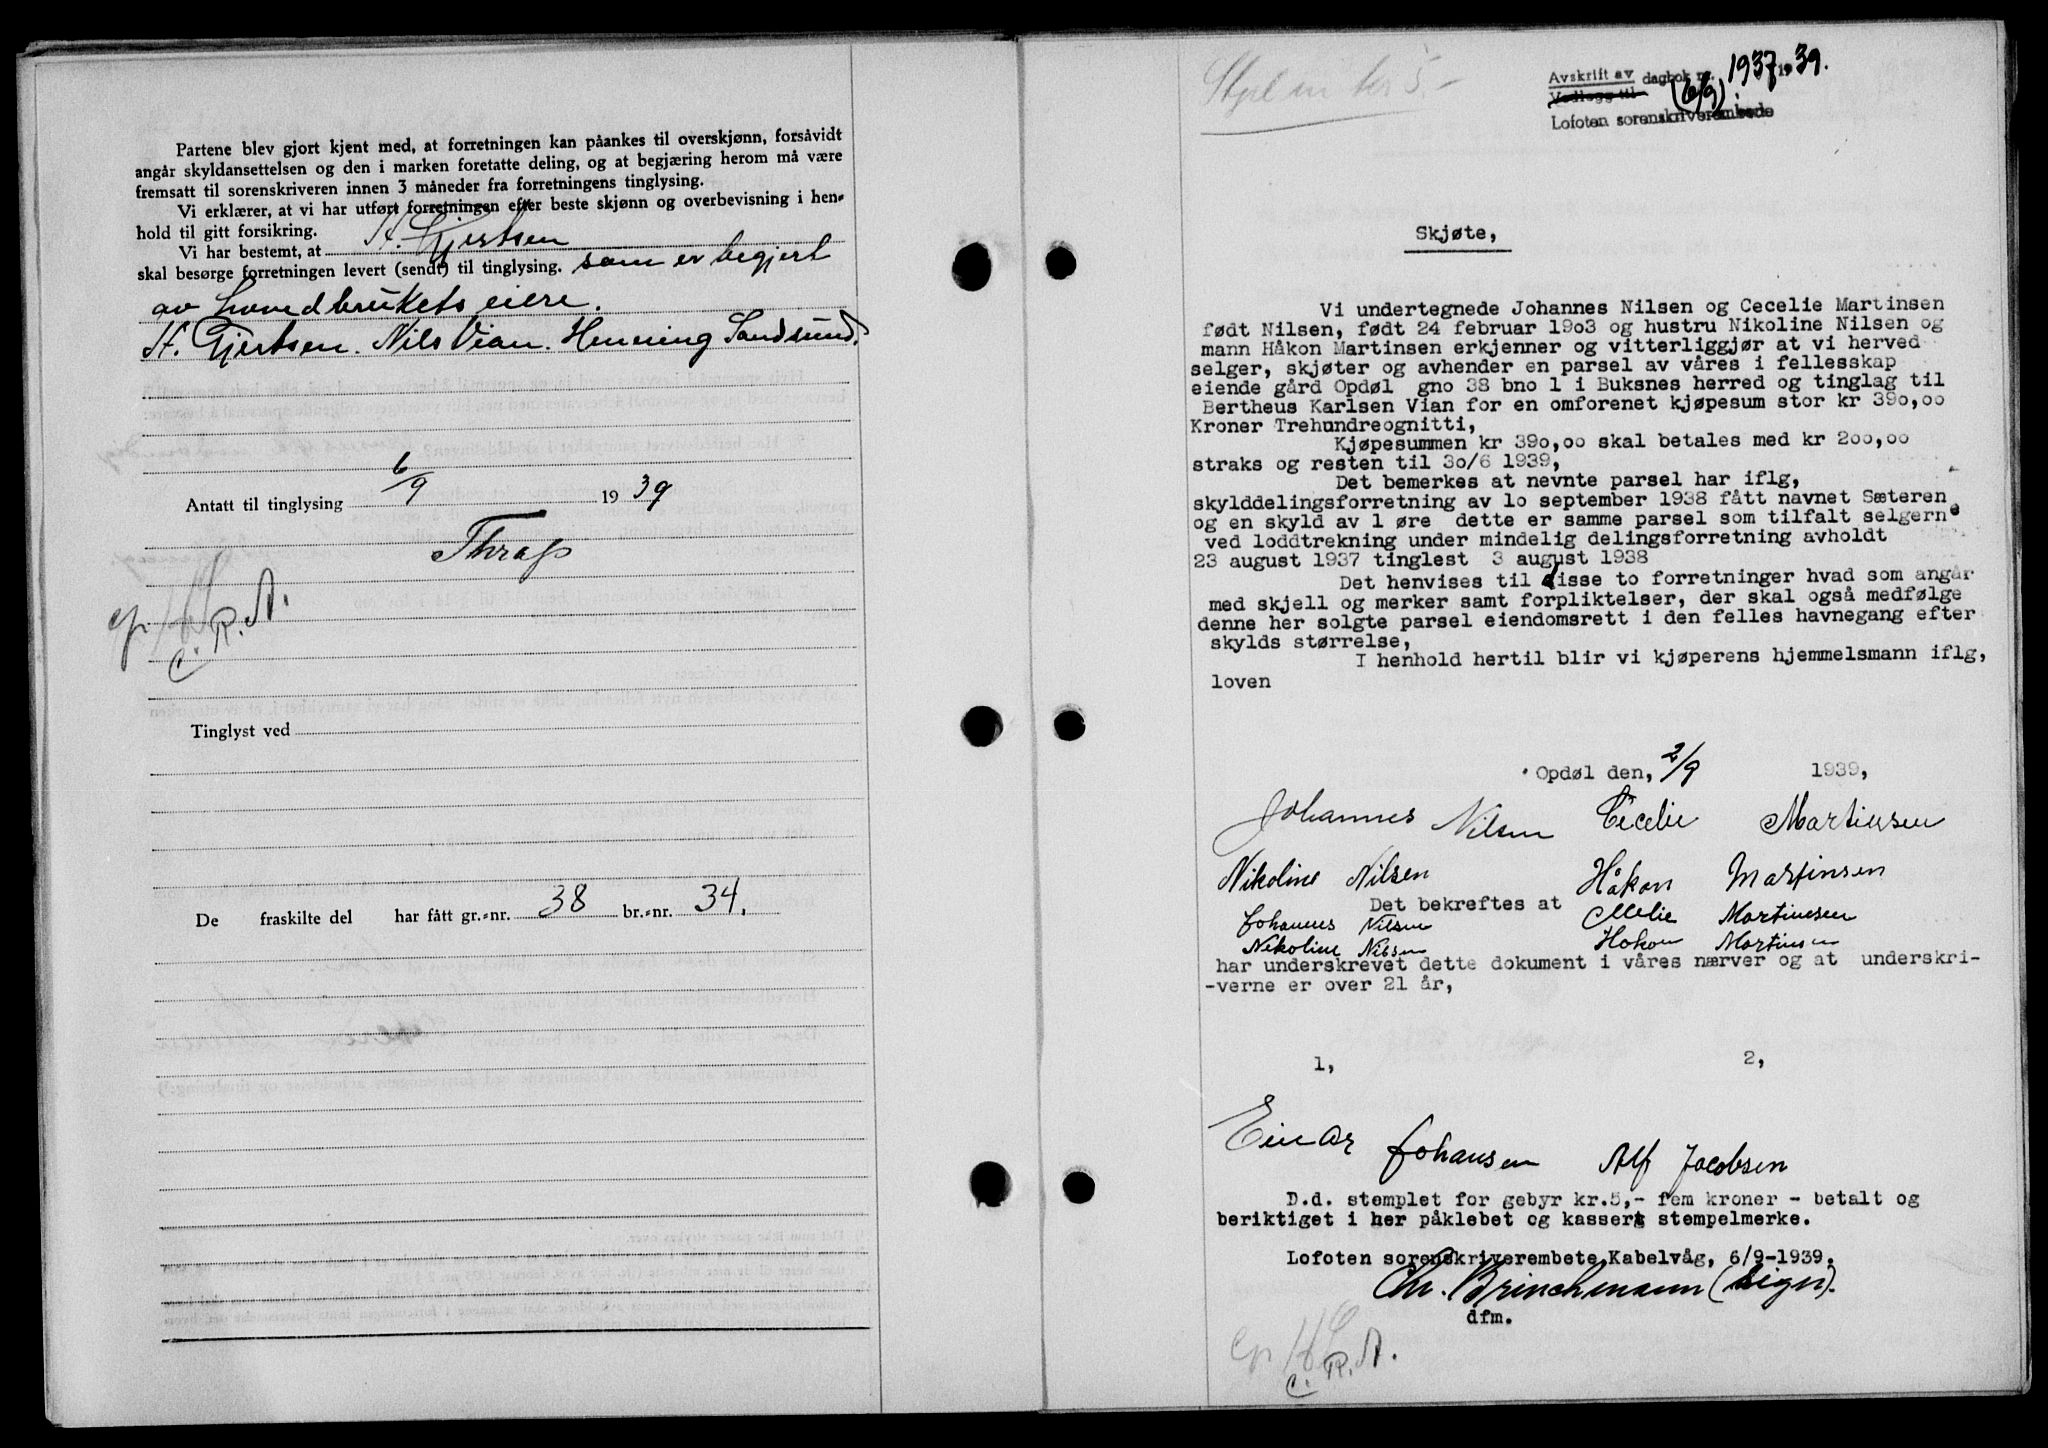 Partene blev gjort kjent med, at forretningen kan påankes til overskjønn, forsåvidt
angår skyldansettelsen og den i marken foretatte deling, og at begjæring herom må være
fremsatt til sorenskriveren innen 3 måneder fra forretningens tinglysing.
Vi erklærer, at vi har utført forretningen efter beste skjønn og overbevisning i hen-
hold til gitt forsikring.
Vi har bestemt, at H. Gjertsen
skal besørge forretningen levert (sendt) til tinglysing. som er begjert
av hovedbrukets eiere.
H. Gjertsen. Nils Vian. Henning Sandsund.
Antatt til tinglysing 6/9 1939
Thrap
C. R. A.
Tinglyst ved
De fraskilte del har fått gr.-nr. 38 br.-nr. 34.
Stpl m kr 5.-
Avskrift av dagbok nr. 1937 1939.
Vedlegg til (6/9)
Lofoten sorenskriverembede
Skjøte,
Vi undertegnede Johannes Nilsen og Cecelie Martinsen
født Nilsen, født 24 februar 19o3 og hustru Nikoline Nilsen og
mann Håkon Martinsen erkjenner og vitterliggjør at vi herved
selger, skjøter og avhender en parsel av våres i fellesskap
eiende gård Opdøl gno 38 bno 1 i Buksnes herred og tinglag til
Bertheus Karlsen Vian for en omforenet kjøpesum stor kr 39o,oo
Kroner Trehundreognitti,
Kjøpesummen kr 39o,oo skal betales med kr 2oo,oo
straks og resten til 3o/6 1939,
Det bemerkes at nevnte parsel har iflg,
skylddelingsforretning av lo september 1938 fått navnet Sæteren
og en skyld av 1 øre dette er samme parsel som tilfalt selgerne
ved loddtrekning under mindelig delingsforretning avholdt
23 august 1937 tinglest 3 august 1938
Det henvises til disse to forretninger hvad som angår
med skjell og merker samt forpliktelser, der skal også medfølge
denne her solgte parsel eiendomsrett i den felles havnegang efter
skylds størrelse,
I henhold hertil blir vi kjøperens hjemmelsmann iflg,
loven
Opdøl den, 2/9 1939,
Johannes Nilsen Cecelie Martinsen
Nikoline Nilsen Håkon Martinsen
Det bekreftes at
Johannes Nilsen Cecelie Martinsen
Nikoline Nilsen Hokon Martinsen
har underskrevet dette dokument i våres nærver og at underskri-
-verne er over 21 år,
1, 2,
Einar Johansen Alf Jacobsen
D.d. stemplet for gebyr kr.5,- fem kroner - betalt og
beriktiget i her påklebet og kassert stempelmerke.
Lofoten sorenskriverembete Kabelvåg, 6/9-1939.
Chr. Brinchmann (sign).
dfm.
C. R. A.